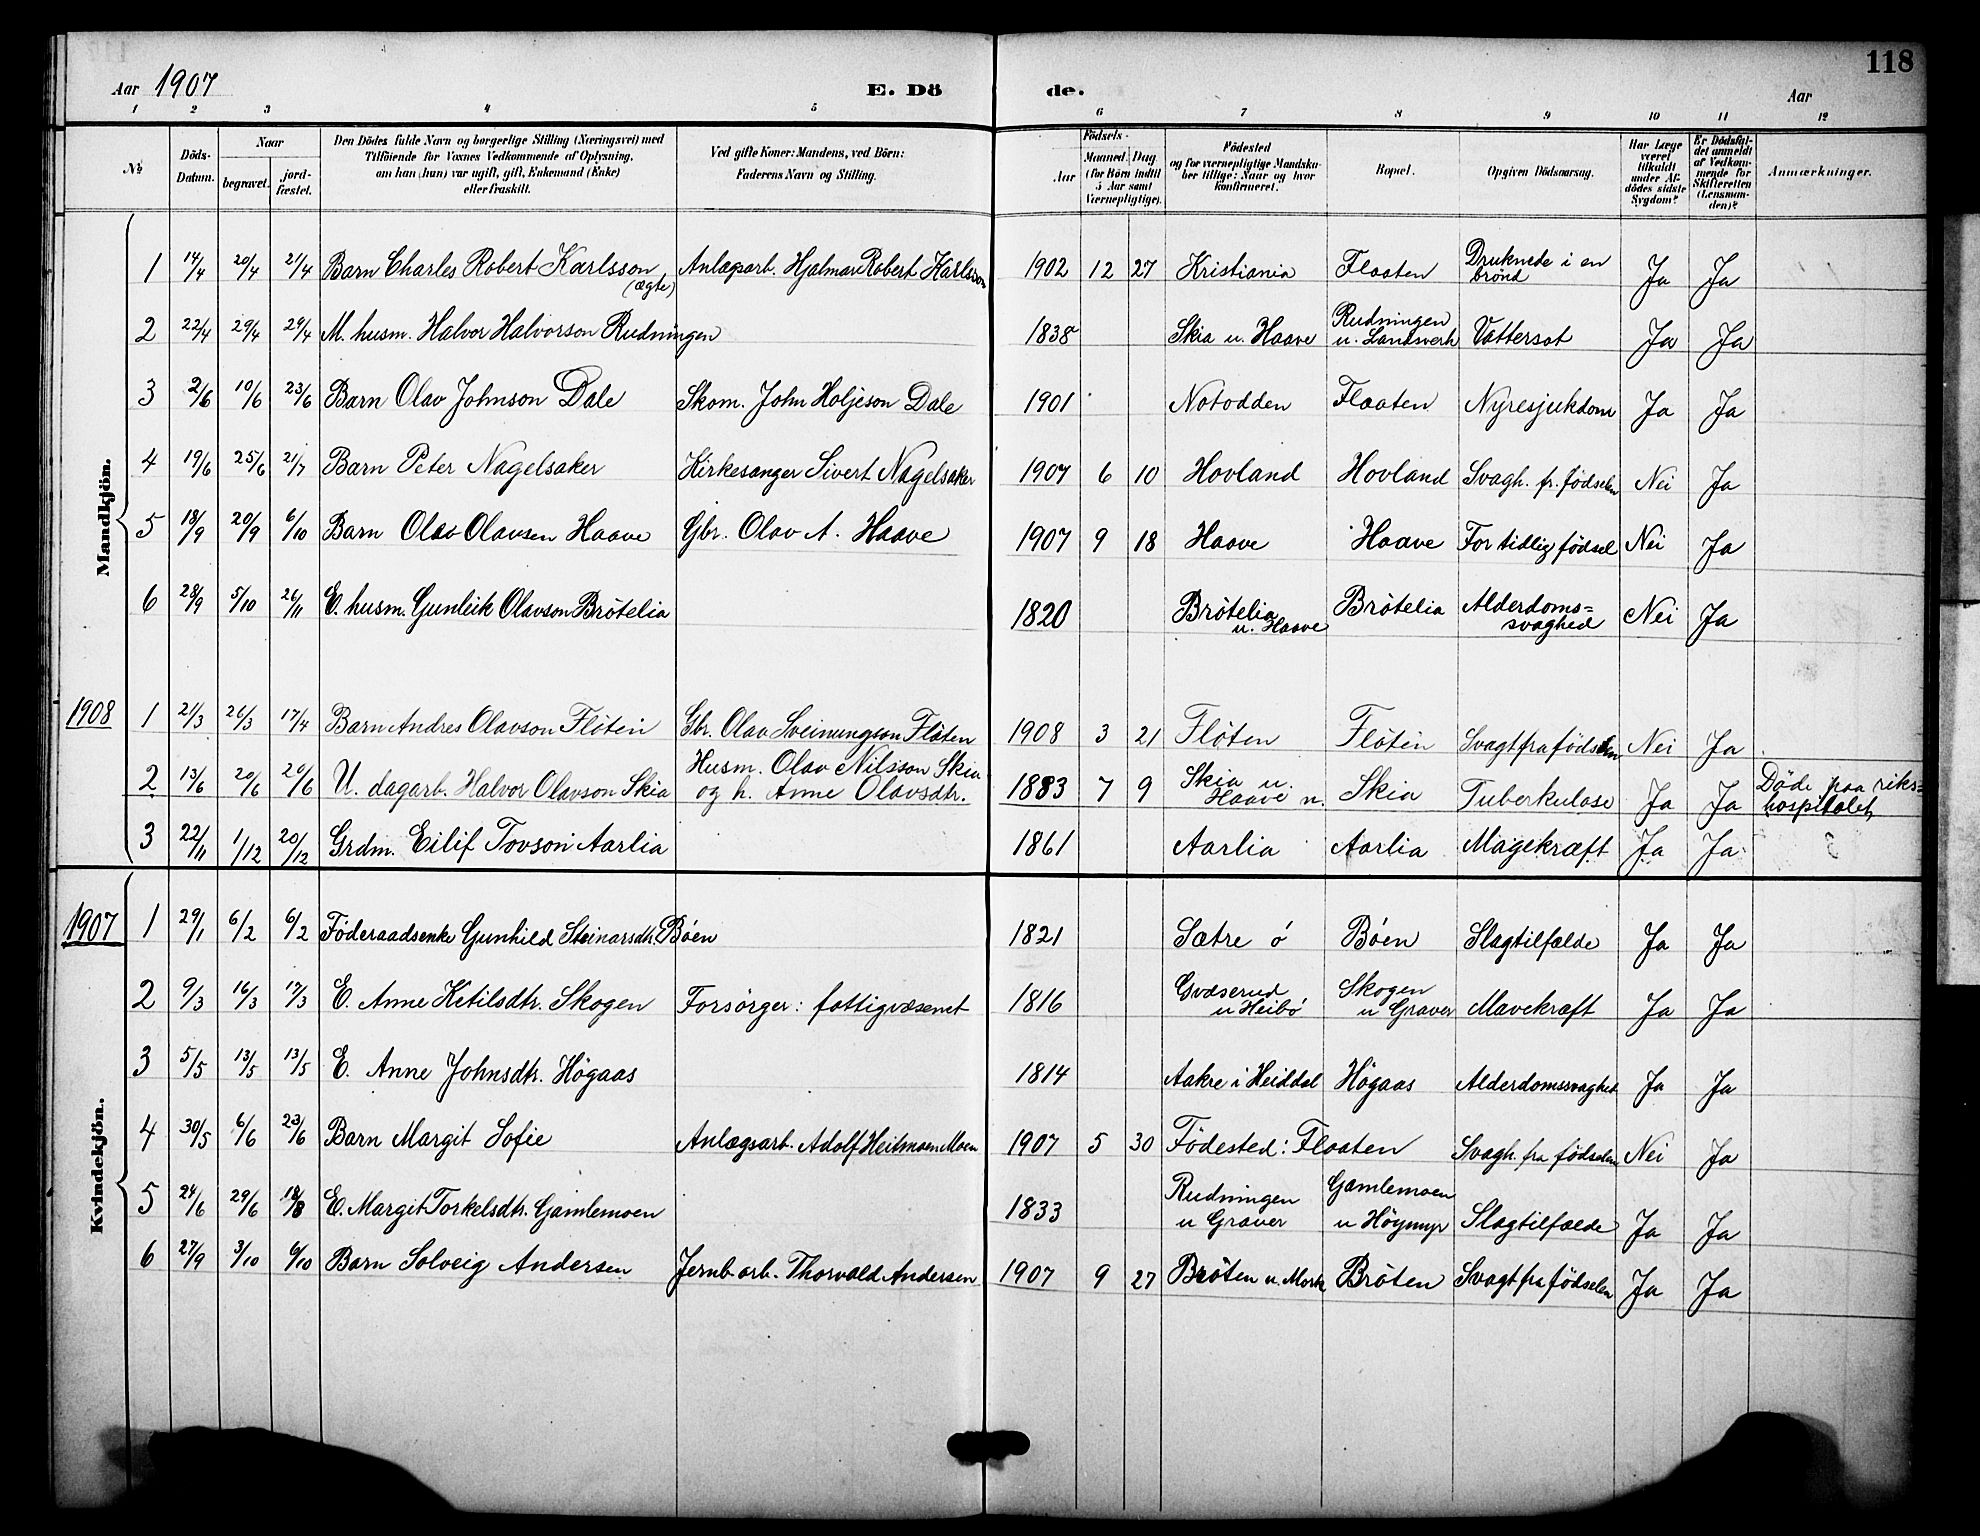 118
Aar 1907
E. Dö
de.
Aar
1 2 3 4 5 6 7 8 9 10 11 12
No
Döds-Datum.
Naar
begravet.
jord-fæstet.
Den Dödes fulde Navn og borgerlige Stilling (Næringsvei) med
Tilföiende for Voxnes Vedkommende af Oplysning,
om han (hun) var ugift, gift, Enkemand (Enke)
eller fraskilt.
Ved gifte Koner: Mandens, ved Börn:
Faderens Navn og Stilling.
Födsels-
Aar
Maaned. Dag
(for Börn indtil
5 Aar samt
Værnepligtige).
Födested
og for værnepligtige Mandska-
ber tillige: Naar og hvor
konfirmeret.
Bopæl.
Opgiven Dödsaarsag.
Har Læge
været
tilkaldt
under Af-
dödes sidste
Sygdom?
Er Dödsfal-
det anmeldt
af Vedkom-
mende for
Skifteretten
(Lensman-
den)?
Anmærkninger.
Mandkjön.
1 14/4 20/4 21/4 Barn Charles Robert Karlsson (ægte) Anlægsarb. Hjalmar Robert Karlsson 1902 12 27 Kristiania Flaaten Druknede i en brönd Ja Ja
2 22/4 29/4 29/4 M. husm. Halvor Halvorson Rudningen 1838 Skia u. Haave Rudningen u. Landsverk Vattersot Ja Ja
3 2/6 10/6 23/6 Barn Olav Johnson Dale Skom. John Holjeson Dale 1901 Notodden Flaaten Nyresjukdom Ja Ja
4 19/6 25/6 21/7 Barn Peter Nagelsaker Kirkesanger Sivert Nagelsaker 1907 6 10 Hovland Hovland Svagh. fr. födselen Nei Ja
5 18/9 20/9 6/10 Barn Olav Olavsen Haave Gbr. Olav A. Haave 1907 9 18 Haave Haave For tidlig födsel Nei Ja
6 28/9 5/10 26/11 E. husm. Gunleik Olavson Brötelia 1820 Brötelia u. Haave Brötelia Alderdoms=svaghed Nei Ja
1908
1 21/3 26/3 17/4 Barn Andres Olavson Flötin Gbr. Olav Sveinungson Flöten 1908 3 21 Flöten Flötin Svagt fra födselen Nei Ja
2 13/6 20/6 20/6 U. dagarb. Halvor Olavson Skia Husm. Olav Nilsson Skia og h. Anne Olavsdtr. 1883 7 9 Skia u. Haave n. Skia Tuberkulose Ja Ja Döde paa riks=hospitalet
3 22/11 1/12 20/12 Grdm. Eilif Tovson Aarlia 1861 Aarlia Aarlia Magekræft Ja Ja
Kvindekjön.
1907
1 29/1 6/2 6/2 Föderaadsenke Gunhild Steinarsdtr. Böen 1821 Sætre ö Böen Slagtilfælde Ja Ja
2 9/3 16/3 17/3 E. Anne Ketilsdtr. Skogen Forsörger: fattigvæsenet 1816 Gvæserud u Heibö Skogen u Graver Mavekræft Ja Ja
3 5/5 13/5 13/5 E. Anne Johnsdtr. Högaas 1814 Aakre i Heiddal Högaas Alderdomssvaghet Ja Ja
4 30/5 6/6 23/6 Barn Margit Sofie Anlægsarb. Adolf Heitmoen Moen 1907 5 30 Födested: Flaaten Svagh. fra födselen Nei Ja
5 24/6 29/6 18/8 E. Margit Torkelsdtr. Gamlemoen 1833 Rudningen u Graver Gamlemoen u Högmyr Slagtilfælde Ja Ja
6 27/9 3/10 6/10 Barn Solveig Andersen Jernb. arb. Thorvald Andersen 1907 9 27 Bröten u. Mork Bröten Svagt fra födselen Ja Ja